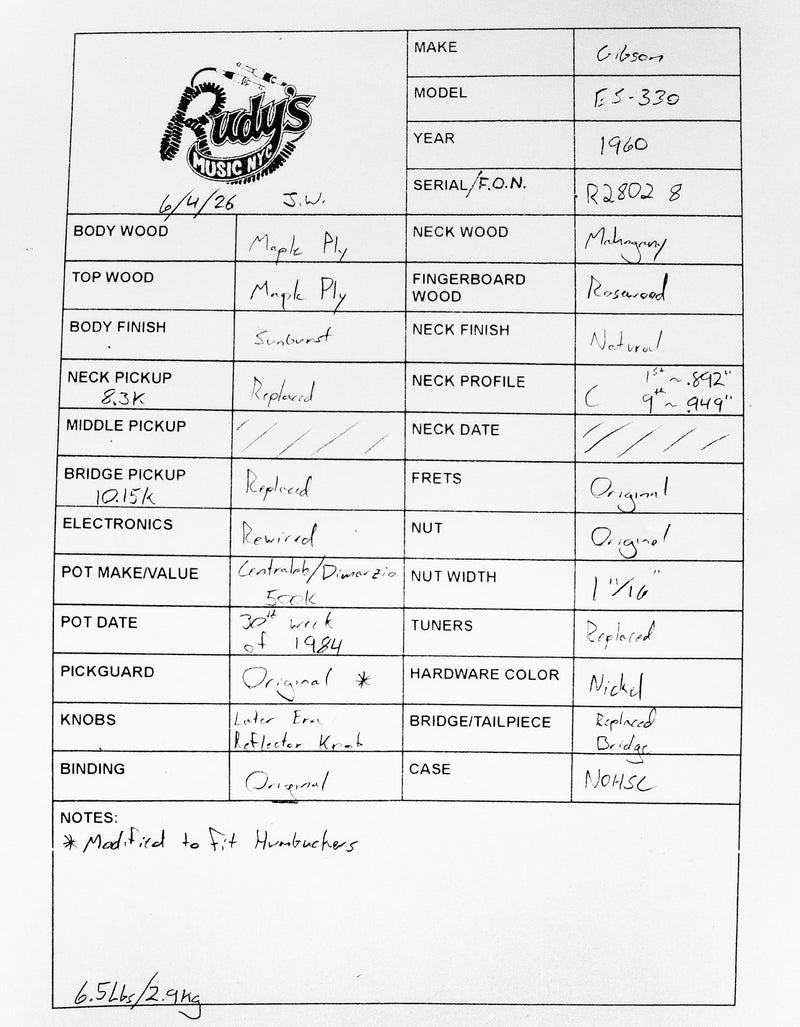 Rudy's
MUSIC NYC
6/4/26 J.W.
MAKE Gibson
MODEL ES-330
YEAR 1960
SERIAL/F.O.N. R2802 8
BODY WOOD Maple Ply
NECK WOOD Mahogany
TOP WOOD Maple Ply
FINGERBOARD WOOD Rosewood
BODY FINISH Sunburst
NECK FINISH Natural
NECK PICKUP 8.3K Replaced
NECK PROFILE C 1st ~ .892"
9th ~ .949"
MIDDLE PICKUP / / / / /
NECK DATE / / / / /
BRIDGE PICKUP 10.15K Replaced
FRETS Original
ELECTRONICS Rewired
NUT Original
POT MAKE/VALUE Centralab/Dimarzio
500K
NUT WIDTH 1 11/16"
POT DATE 30th week
of 1984
TUNERS Replaced
PICKGUARD Original *
HARDWARE COLOR Nickel
KNOBS Later Era
Reflector Knob
BRIDGE/TAILPIECE Replaced
Bridge
BINDING Original
CASE NOHSC
NOTES:
* Modified to fit Humbuckers
6.5Lbs/2.9Kg